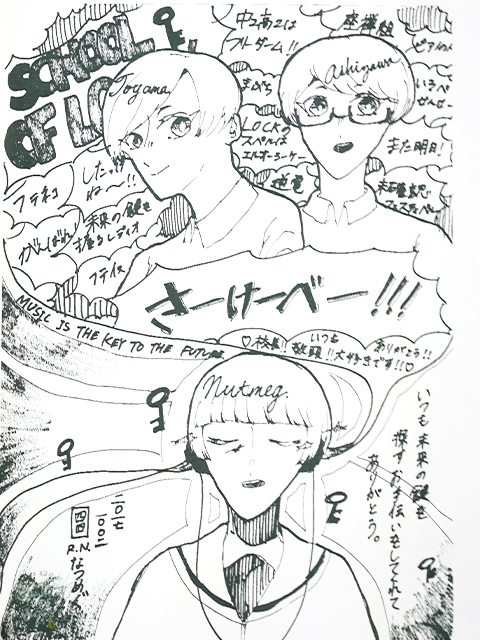 SCHOOL
OF LO
Toyama.
Ashizawa
中高2は
フォーダーム!!
座禅組
ピアノ
まみち
いるべ
ぜんろー
LOCKの
スペルは
エルオーシーケー
また明日!
未確認
フェスティバル
した!!
ね~!!
フテネコ
がんばれ
未来の鍵を
握るレディオ
フテイヌ
さーけーべー!!!
MUSIC IS THE KEY TO THE FUTURE
♡校長!!
いつも
教頭!!
大好きです!!♡
ありがとう!!
Nutmeg.
いつも未来の鍵を
探すお手伝いをしてくれて
ありがとう。
R.N.なつめぐ